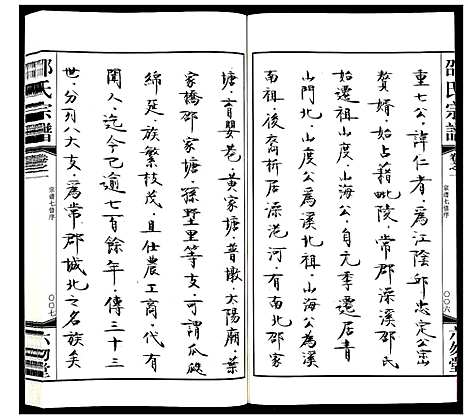 邵氏宗譜
卷之一
宗譜七修序
〇〇六
六勿堂
重七公，諱仁者，為江陰邱忠定公宓
贅婿，始占籍毗陵，常郡澡溪邵氏
始遷祖山度、山海公，自元季遷居青
山門北，山度公為溪北祖，山海公為溪
南祖，後裔析居澡港河，有南北邵家
塘，育嬰巷，黃家塘，普墩，太陽廟，葉
家橋邵家塘，孫墅里等支，可謂瓜瓞
綿延，族繁枝茂，且仕農工商，代有
聞人，迄今已逾七百餘年，傳三十三
世，分列八大支，為常郡城北之名族矣
邵氏宗譜
卷之一
宗譜七修序
〇〇七